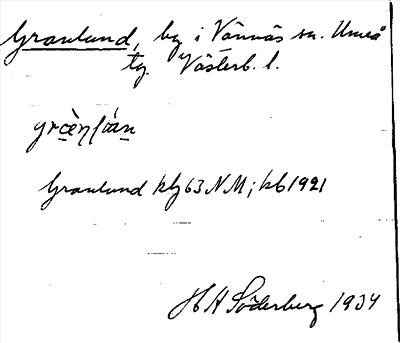 Granlund, by i Vännäs sn. Umeå
tg. Västerb. l.
Granlund klg 63 NM; kb 1921
H A Söderberg 1934